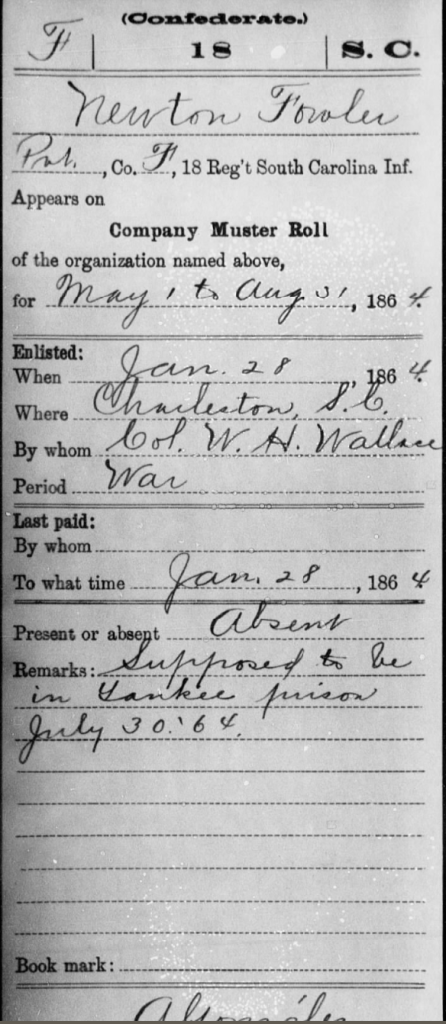 (Confederate.)
F | 18 | S. C.
Newton Fowler
Pvt., Co. F, 18 Reg't South Carolina Inf.
Appears on
Company Muster Roll
of the organization named above,
for May 1 to Aug 31, 1864.
Enlisted:
When Jan. 28, 1864.
Where Charleston, S.C.
By whom Col. W. H. Wallace
Period War
Last paid:
By whom
To what time Jan. 28, 1864
Present or absent Absent
Remarks: Supposed to be
in Yankee prison
July 30.'64.
Book mark: